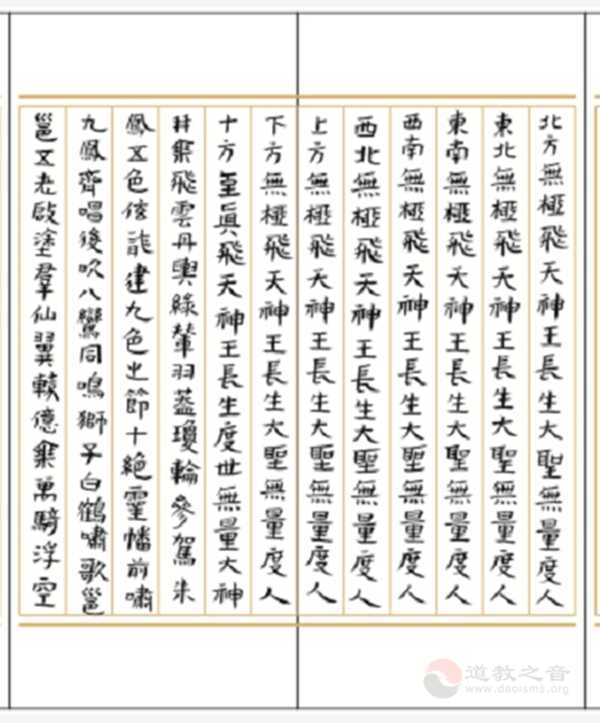 北方無極飛天神王長生大聖無量度人
東北無極飛天神王長生大聖無量度人
東南無極飛天神王長生大聖無量度人
西南無極飛天神王長生大聖無量度人
西北無極飛天神王長生大聖無量度人
上方無極飛天神王長生大聖無量度人
下方無極飛天神王長生大聖無量度人
十方至眞飛天神王長生度世無量大神
并乗飛雲丹輿綠輦羽蓋瓊輪參駕朱
鳳五色伭龍建九色之節十絕靈幡前嘯
九鳳齊唱後吹八鸞同鳴獅子白鶴嘯歌邕
邕五老啟塗羣仙翼轅億乗萬騎浮空
道教之音
www.daoisms.org